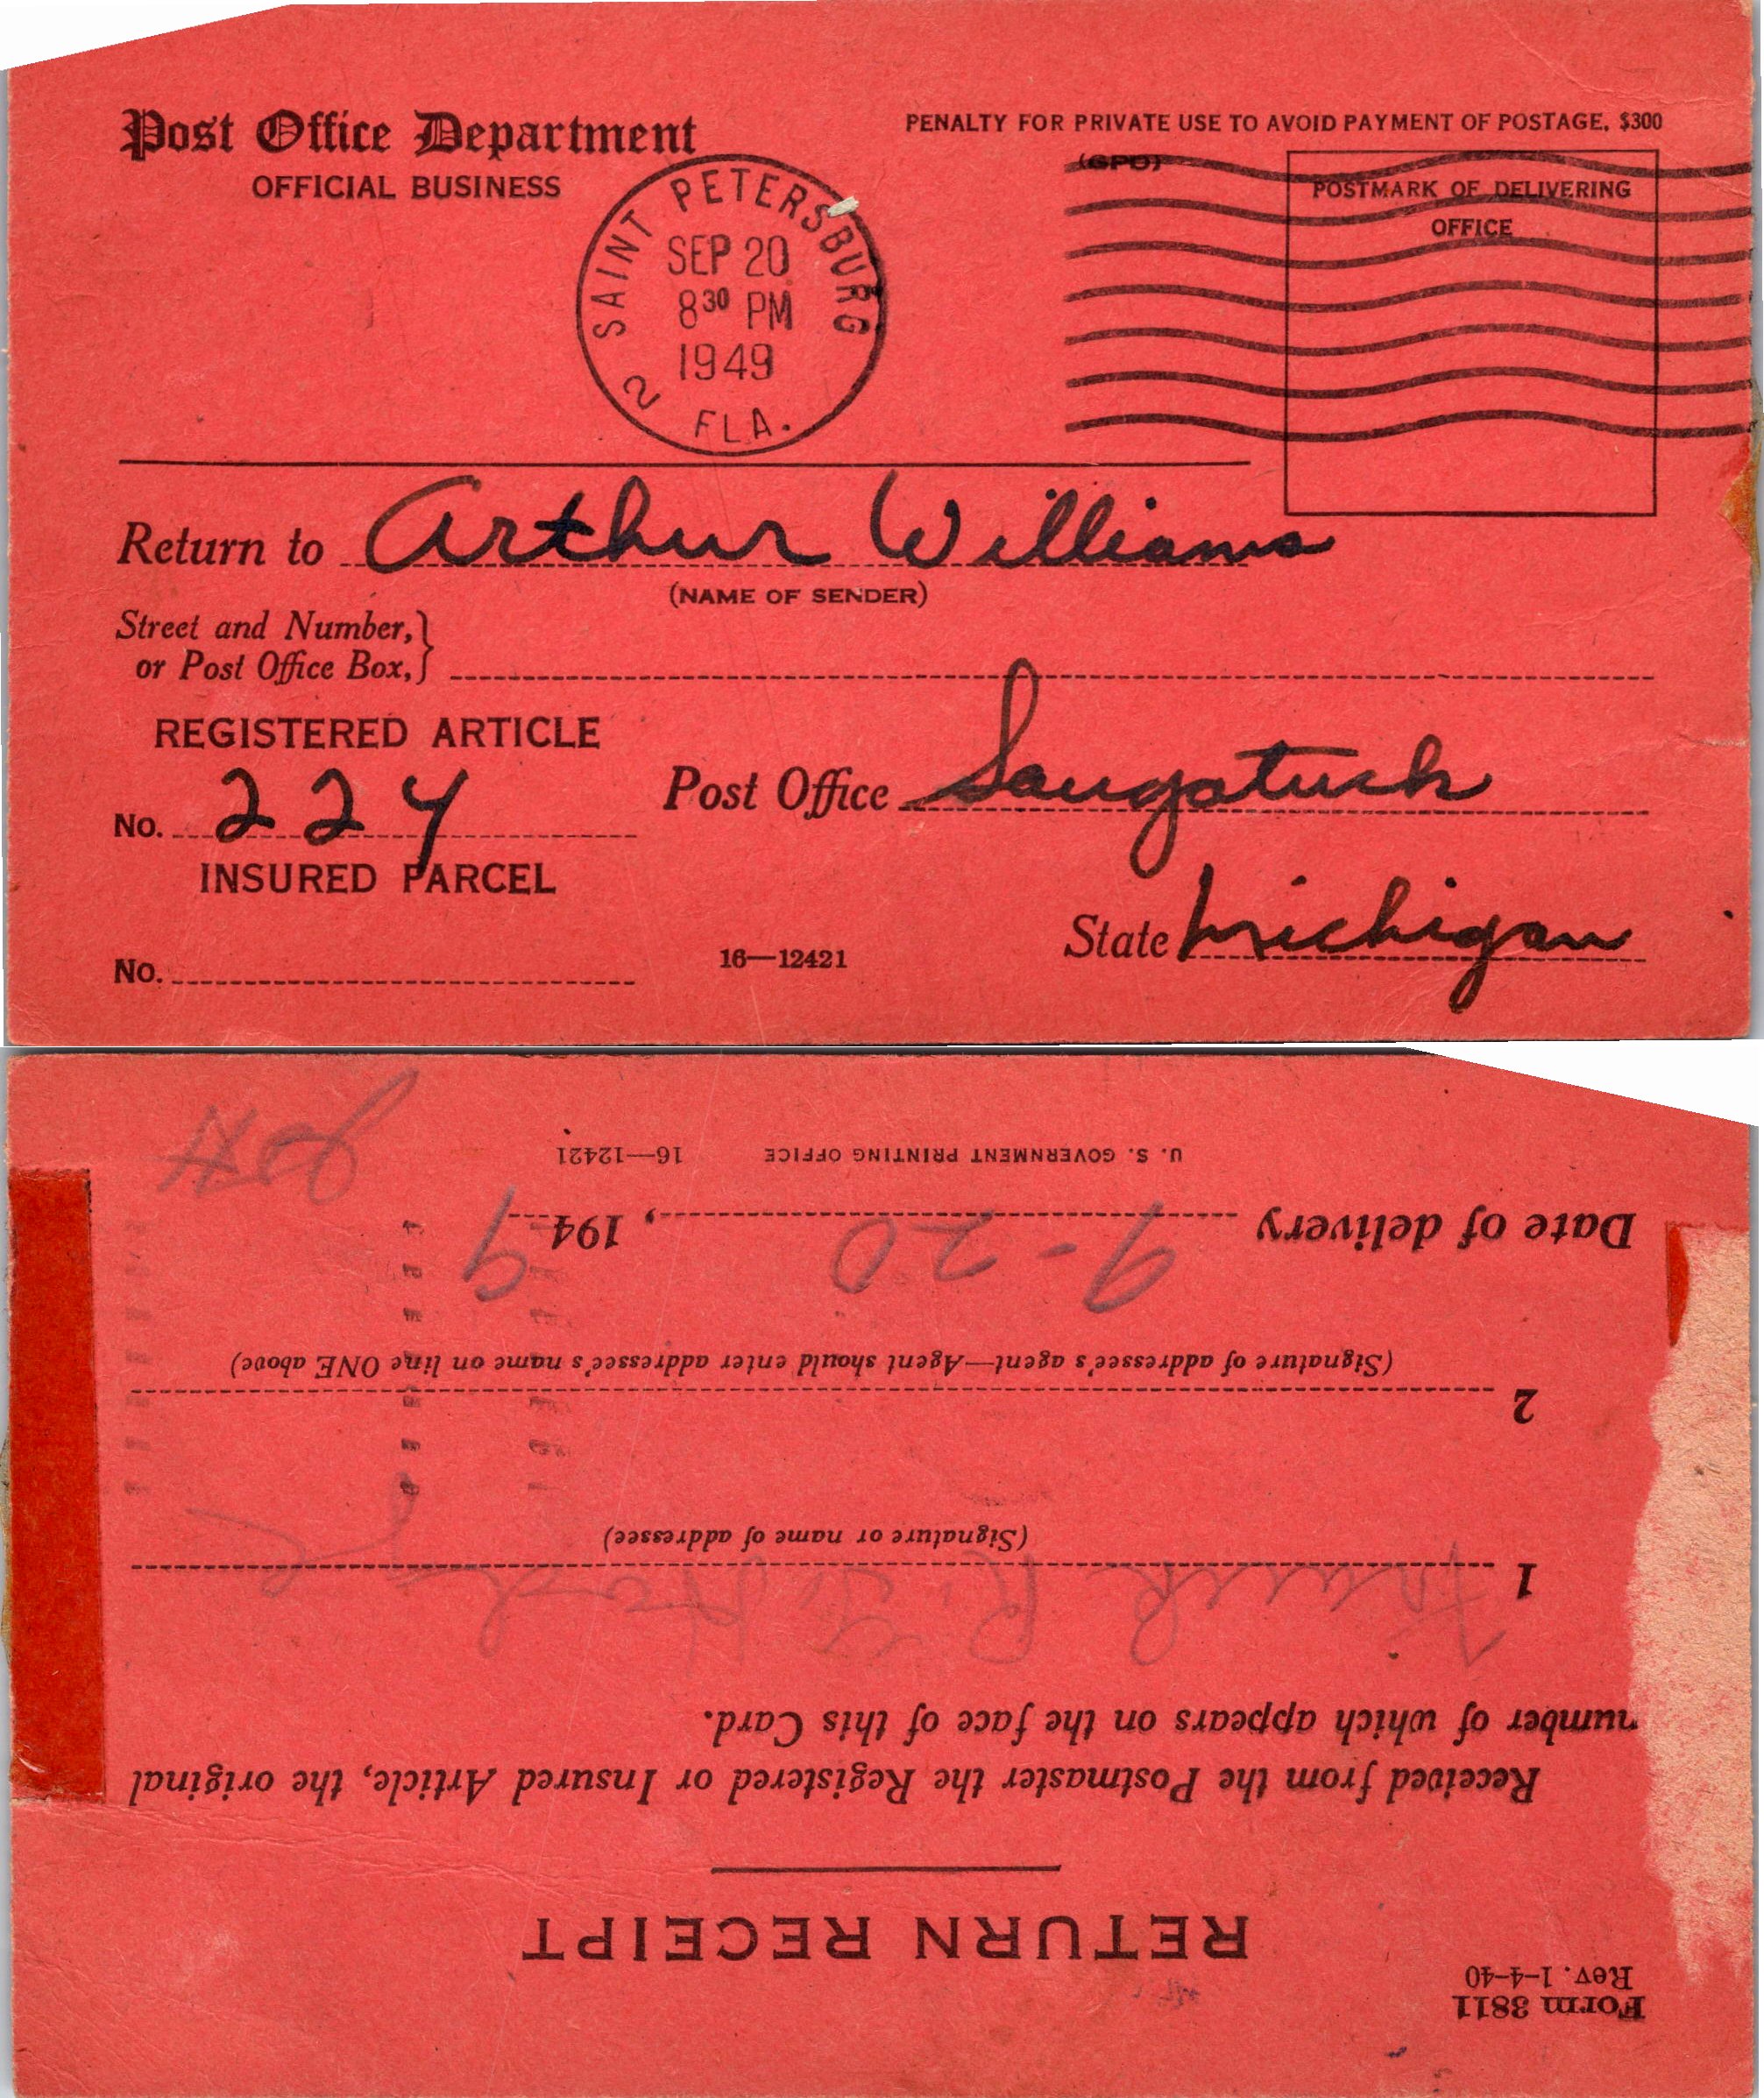 Post Office Department
OFFICIAL BUSINESS
PENALTY FOR PRIVATE USE TO AVOID PAYMENT OF POSTAGE, $300
(GPO)
POSTMARK OF DELIVERING
OFFICE
SAINT PETERSBURG
SEP 20
8 30 PM
1949
2 FLA.
Return to Arthur Williams
(NAME OF SENDER)
Street and Number,
or Post Office Box,
REGISTERED ARTICLE
No. 224
Post Office Saugatuck
INSURED PARCEL
State Michigan
No.
16—12421
Form 3811
Rev. 1-4-40
RETURN RECEIPT
Received from the Postmaster the Registered or Insured Article, the original
number of which appears on the face of this Card.
1 Frank R.
(Signature or name of addressee)
2
(Signature of addressee's agent—Agent should enter addressee's name on line ONE above)
Date of delivery 9-20, 1949
U. S. GOVERNMENT PRINTING OFFICE 16—12421